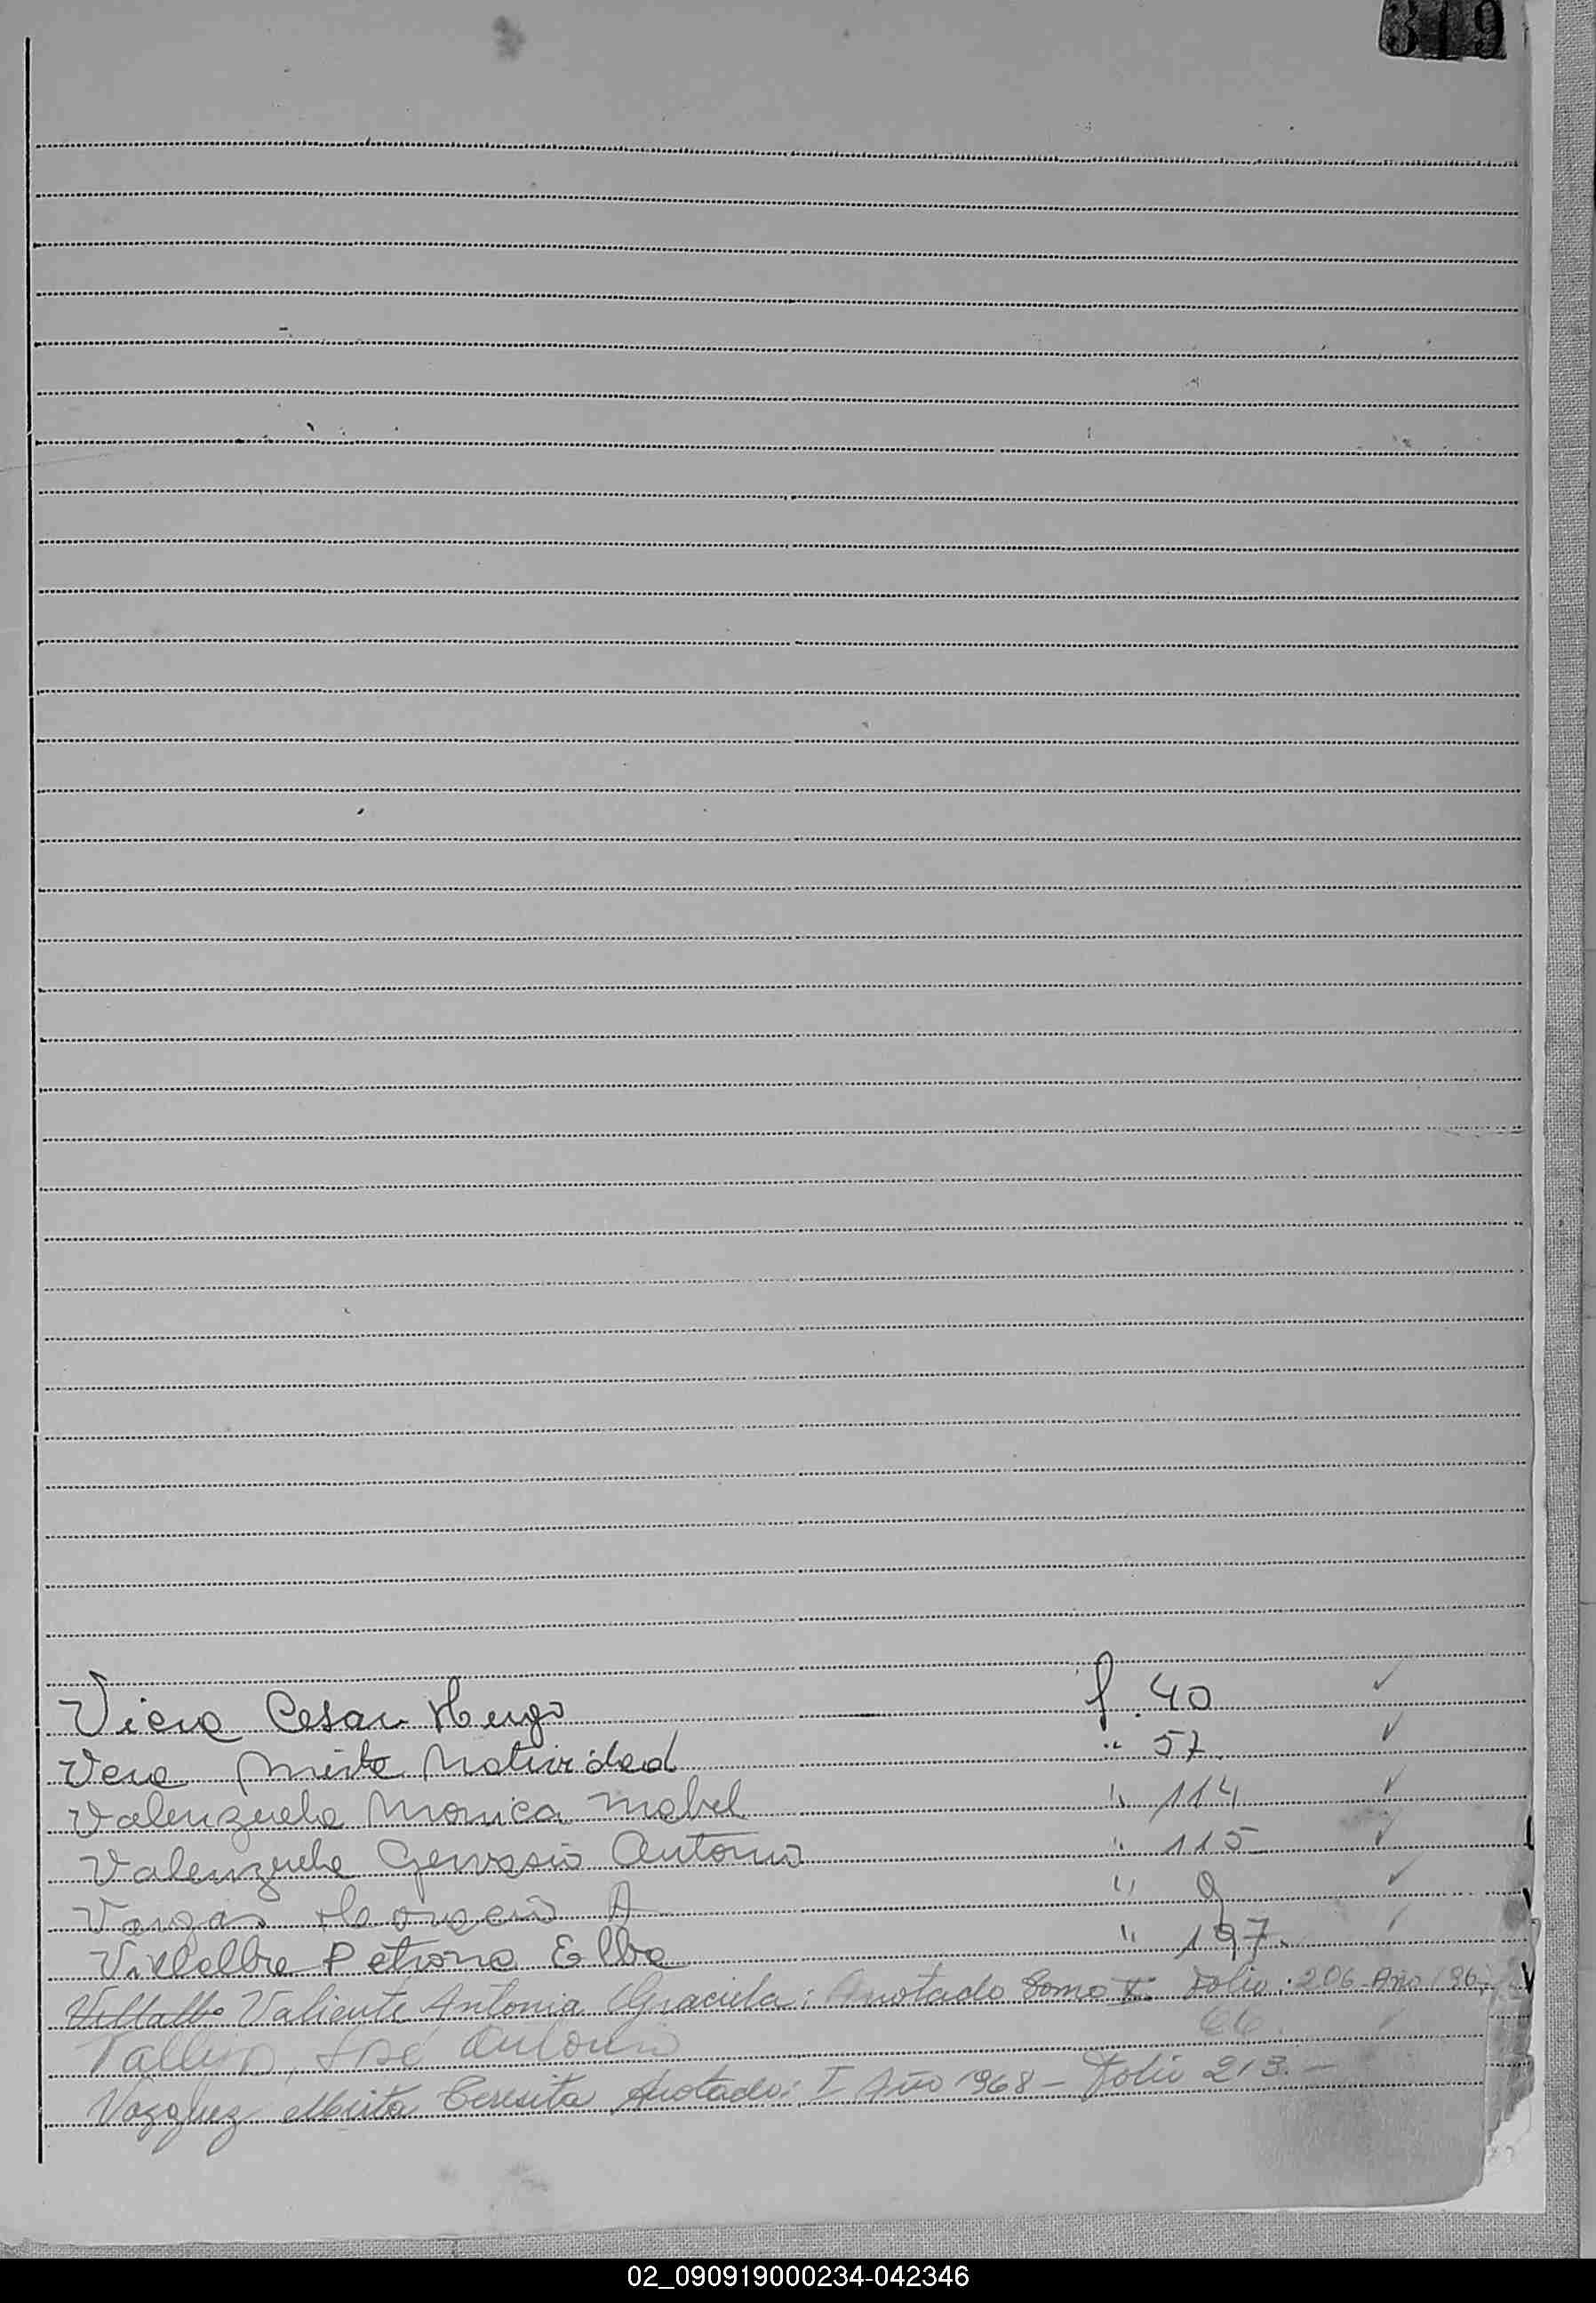 319
Viera Cesar Hugo f. 40 ✓
Vera Mirta Natividad " 57. ✓
Valenzuela Monica Mabel " 114 ✓
Valenzuela Gervasio Antonio " 115 ✓
Vargas Horacio A " 9 ✓
Villalba Petrona Elba " 197. ✓
Villalba Valiente Antonia Graciela: Anotado Tomo II Folio: 206 Año 196
Vallejo, José Antonio 66. ✓
Vazquez Mirta Teresita Anotado: I Año 1968 - Folio 213. -
02_090919000234-042346